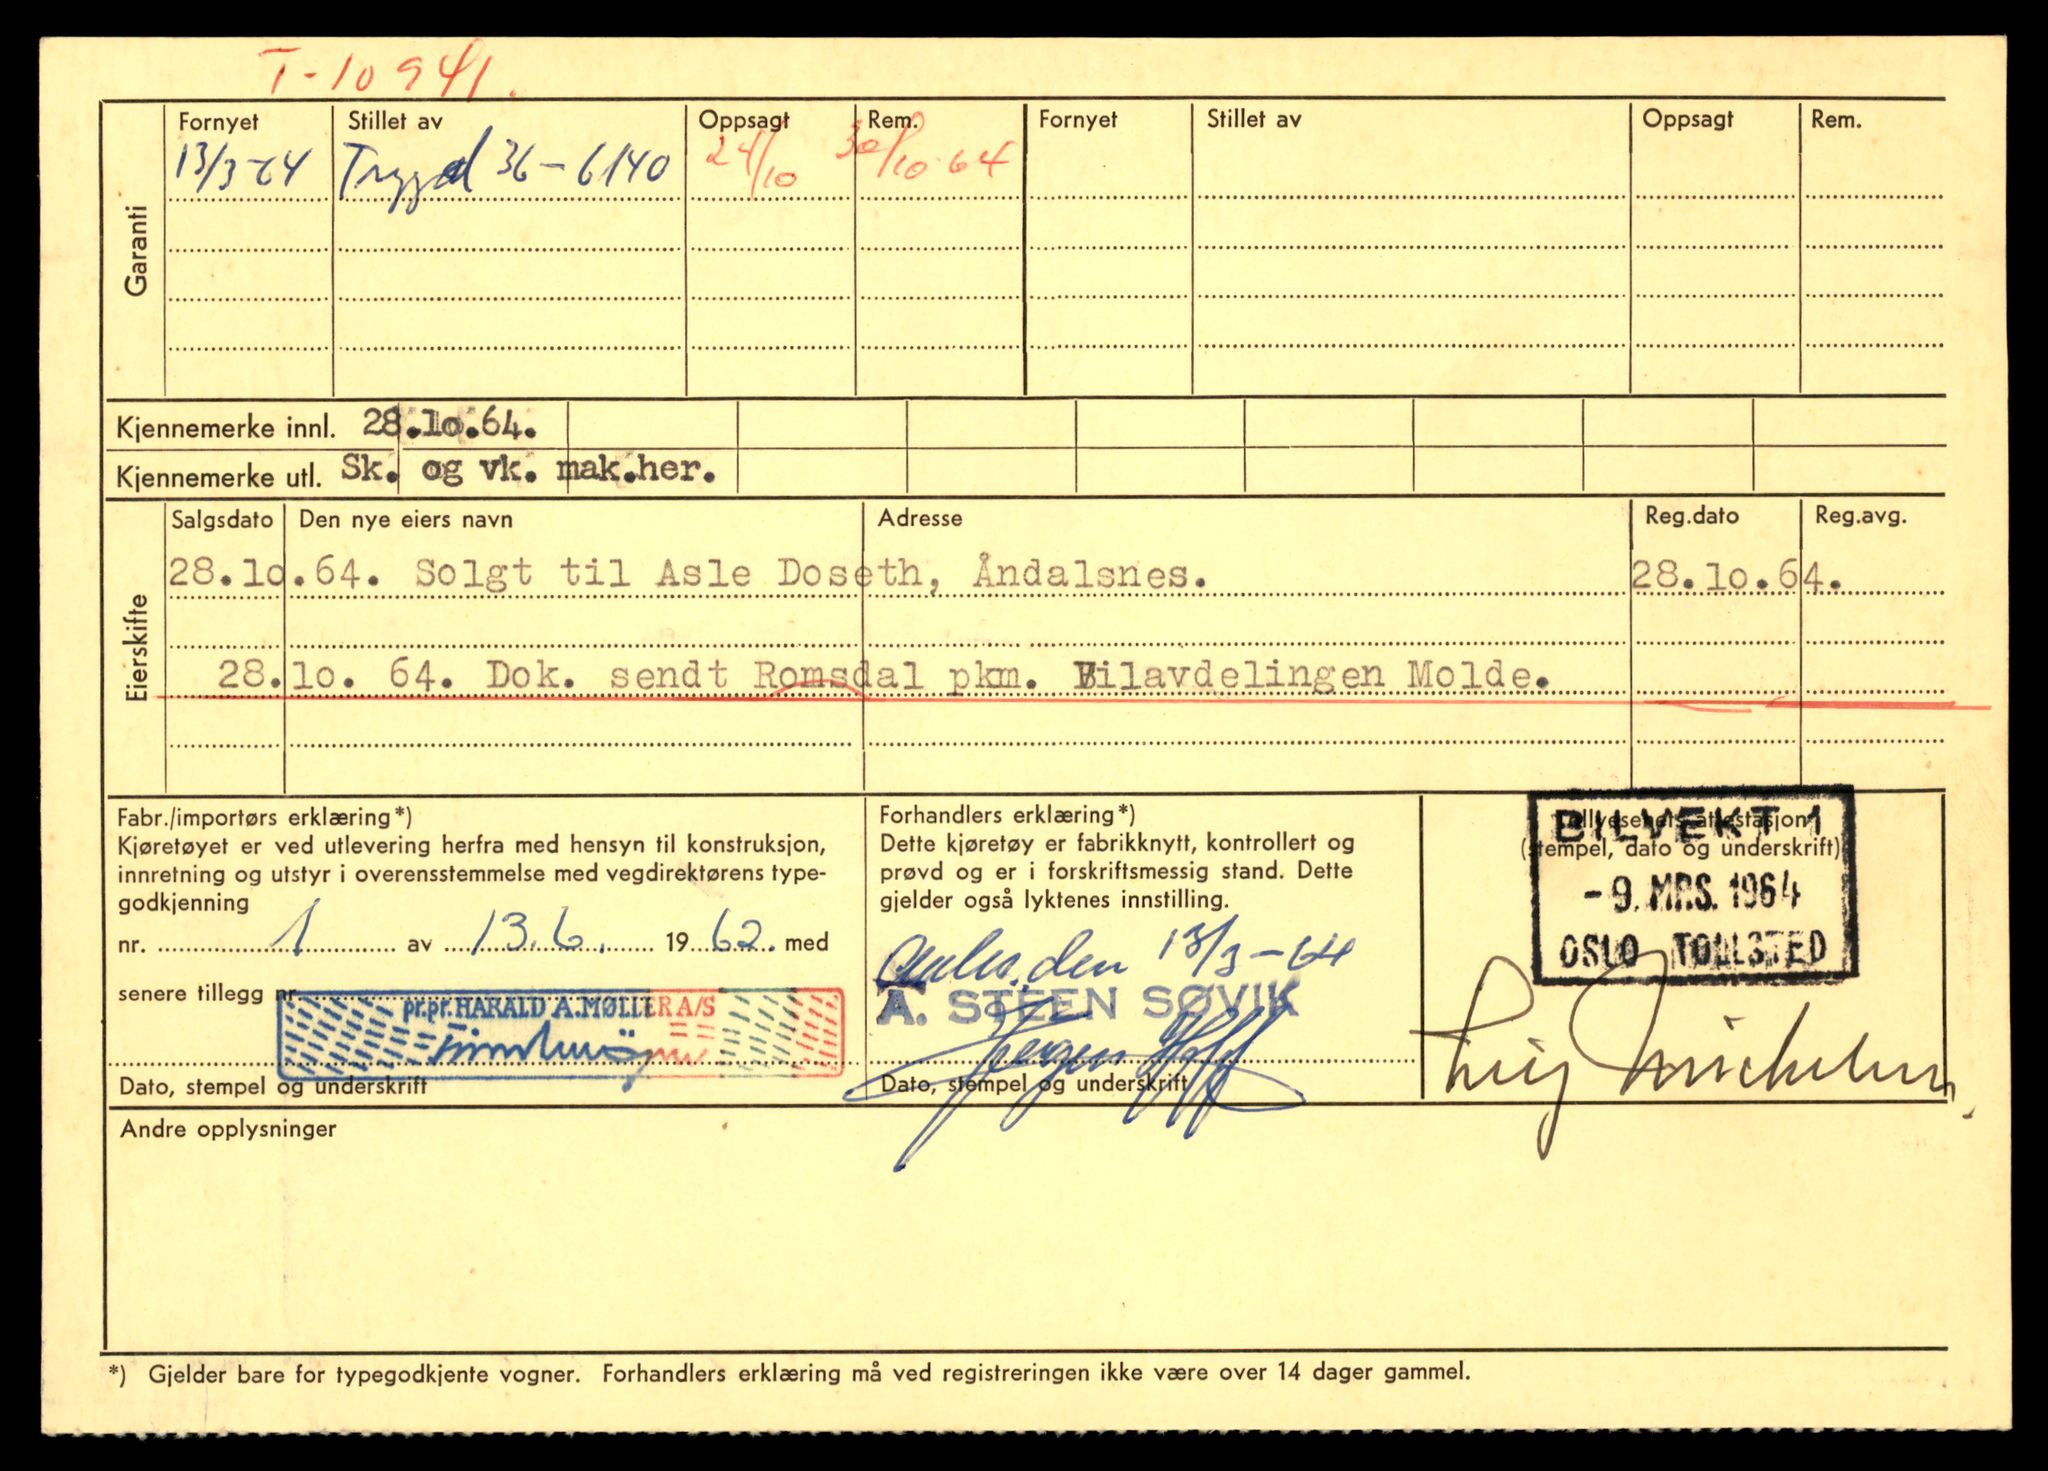 T-10941.
Garanti
Fornyet Stillet av Oppsagt Rem. Fornyet Stillet av Oppsagt Rem.
13/3-64 Trygd 36-6140 24/10 30/10-64
Kjennemerke innl. 28.10.64.
Kjennemerke utl. Sk. og vk. mak.her.
Eierskifte
Salgsdato Den nye eiers navn Adresse Reg.dato Reg.avg.
28.10.64. Solgt til Asle Doseth, Åndalsnes. 28.10.64.
28.10. 64. Dok. sendt Romsdal pkm. Bilavdelingen Molde.
Fabr./importørs erklæring*)
Kjøretøyet er ved utlevering herfra med hensyn til konstruksjon,
innretning og utstyr i overensstemmelse med vegdirektørens type-
godkjenning
nr. 1 av 13.6. 1962 med
senere tillegg nr.
pr.pr. HARALD A. MØLLER A/S
Dato, stempel og underskrift
Forhandlers erklæring*)
Dette kjøretøy er fabrikknytt, kontrollert og
prøvd og er i forskriftsmessig stand. Dette
gjelder også lyktenes innstilling.
den 13/3-64
A. STEEN SØVIK
Dato, stempel og underskrift
Tollvesenets attestasjon
(stempel, dato og underskrift)
BILVEKT 1
-9. MRS. 1964
OSLO TOLLSTED
Andre opplysninger
*) Gjelder bare for typegodkjente vogner. Forhandlers erklæring må ved registreringen ikke være over 14 dager gammel.